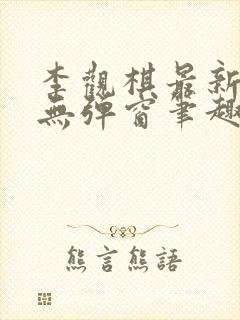 李觀棋最新
無彈窗筆趣
熊言熊語